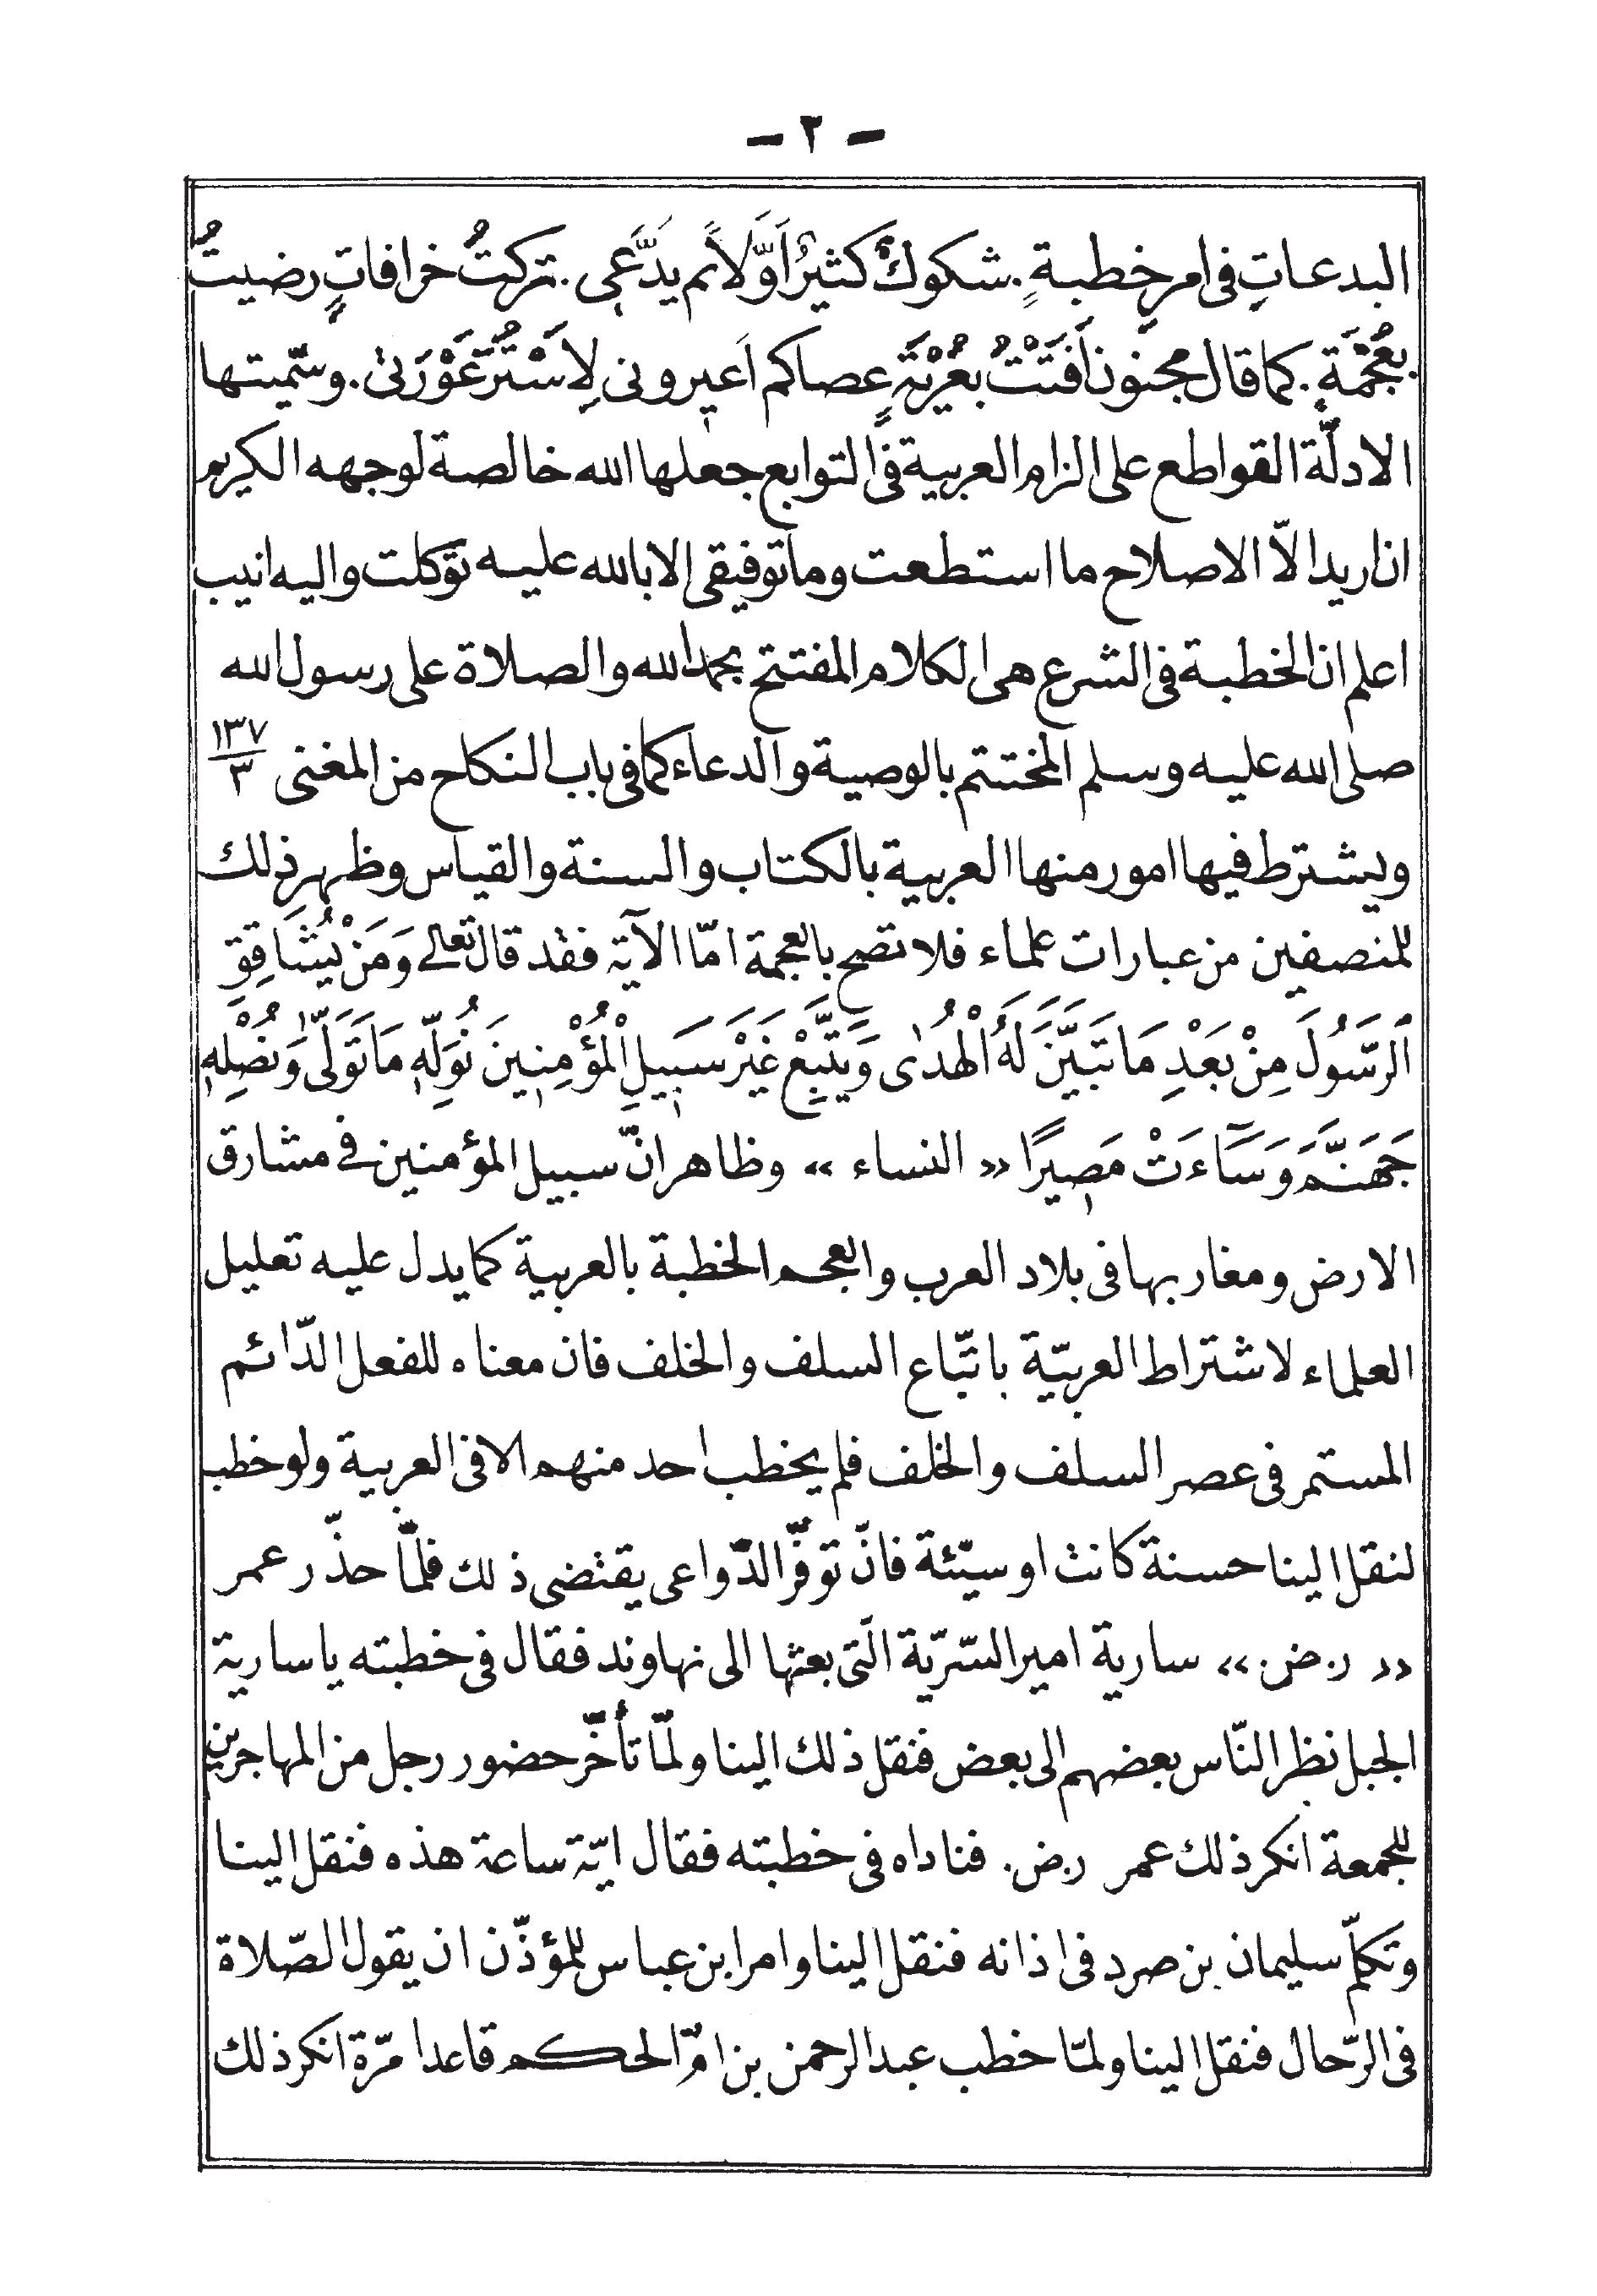 - ٢ -
البدعاتِ فى امرِ خطبةٍ. شكوكٌ كثيرٌ اَوَّلاً ثم يدَّعى. تركتُ خرافاتٍ رضيتُ
بعُجْمَةٍ. كما قال مجنون اَفَتَنْتُ بعُرْيَةٍ عصاكم اَعيرونى لِاَسْتُرَ عَوْرَتى. وسمّيتها
الادلّة القواطع على الزام العربية فى التوابع جعلها الله خالصة لوجهه الكريم
ان اريد الاّ الاصلاح ما استطعت وما توفيقى الا بالله عليه توكلت واليه انيب
اعلم ان الخطبة فى الشرع هى الكلام المفتتح بحمد الله والصلاة على رسول الله
صلى الله عليه وسلم المختتم بالوصية والدعاء كما فى باب النكاح من المغنى ١٣٧/٣
ويشترط فيها امور منها العربية بالكتاب والسنة والقياس وظهر ذلك
للمنصفين من عبارات علماء فلا تصح بالعجمة امّا الآية فقد قال تعالى وَمَنْ يُشَاقِقِ
الرَّسُولَ مِنْ بَعْدِ مَا تَبَيَّنَ لَهُ الْهُدٰى وَيَتَّبِعْ غَيْرَ سَبِيلِ الْمُؤْمِنِينَ نُوَلِّهٖ مَا تَوَلّٰى وَنُصْلِهٖ
جَهَنَّمَ وَسَآءَتْ مَصِيرًا «النساء» وظاهر انّ سبيل المؤمنين فى مشارق
الارض ومغاربها فى بلاد العرب والعجم الخطبة بالعربية كما يدل عليه تعليل
العلماء لاشتراط العربيّة باتّباع السلف والخلف فان معناه للفعل الدّائم
المستمر فى عصر السلف والخلف فلم يخطب احد منهم الا فى العربية ولو خطب
لنقل الينا حسنة كانت او سيّئة فانّ توفّر الدّواعى يقتضى ذلك فلمّا حذّر عمر
«رض.» سارية امير السّريّة الّتى بعثها الى نهاوند فقال فى خطبته يا سارية
الجبل نظر النّاس بعضهم الى بعض فنقل ذلك الينا ولمّا تأخّر حضور رجل من المهاجرين
للجمعة انكر ذلك عمر رض. فناداه فى خطبته فقال ايّة ساعة هذه فنقل الينا
وتكلّم سليمان بن صرد فى اذانه فنقل الينا وامر ابن عباس للمؤذّن ان يقول الصّلاة
فى الرّحال فنقل الينا ولمّا خطب عبد الرحمن بن امّ الحكم قاعدا مرّة انكر ذلك